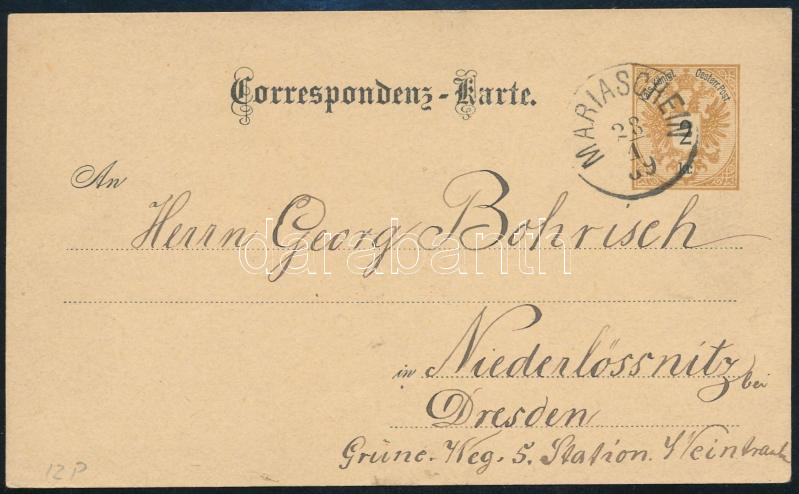 Correspondenz-Karte.
Oesterr. Post.
2
kr
MARIASCHEIN
28
An
Herrn Georg Bohrisch
darabanth
in Niederlössnitz bei
Dresden
Grüne-Weg. 5. Station. Weintraube
12P